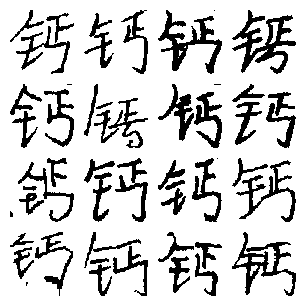 钙钙钙钙
钙钙钙钙
钙钙钙钙
钙钙钙钙